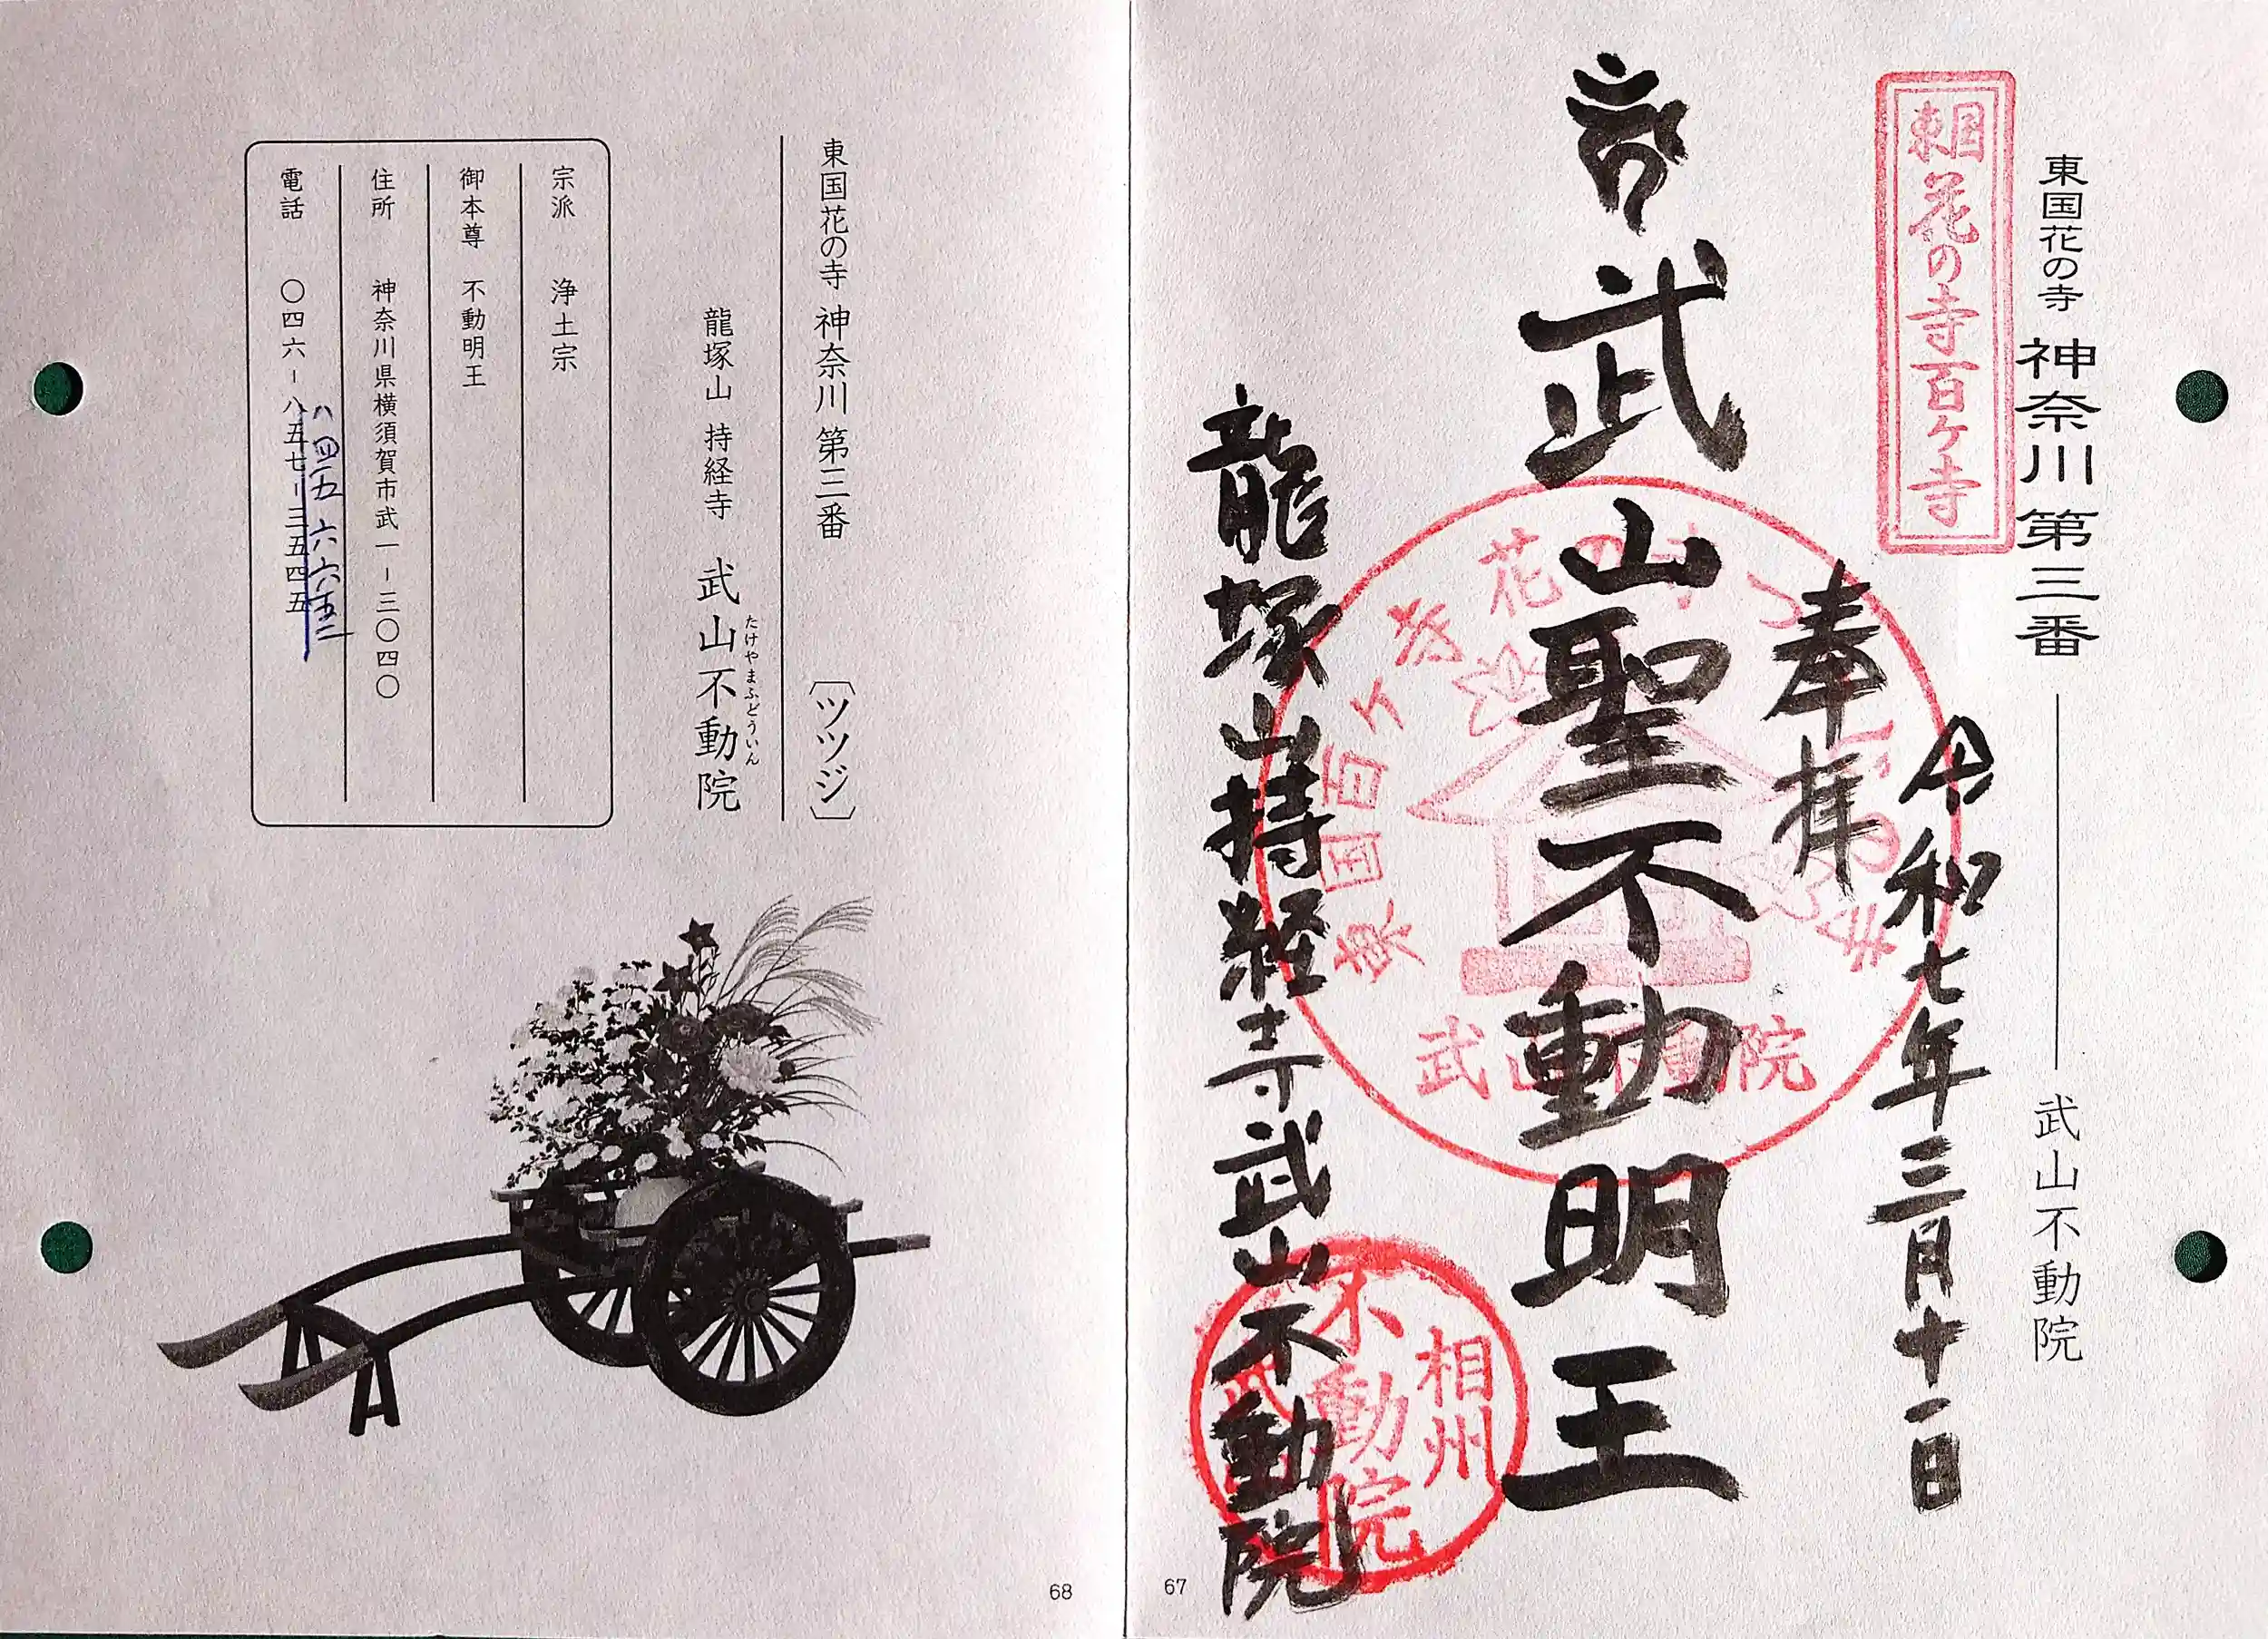 東国花の寺 神奈川第三番 ― 武山不動院
東国花の寺百ヶ寺
令和七年三月十一日
奉拝
武山聖不動明王
武山不動院
相州
不動院
龍塚山持経寺武山不動院
67
東国花の寺 神奈川 第三番 〔ツツジ〕
たけやまふどういん
龍塚山 持経寺 武山不動院
宗派 浄土宗
御本尊 不動明王
住所 神奈川県横須賀市武一-三〇四〇
八四五 六六五二
電話 〇四六-八五七-三五四五
68